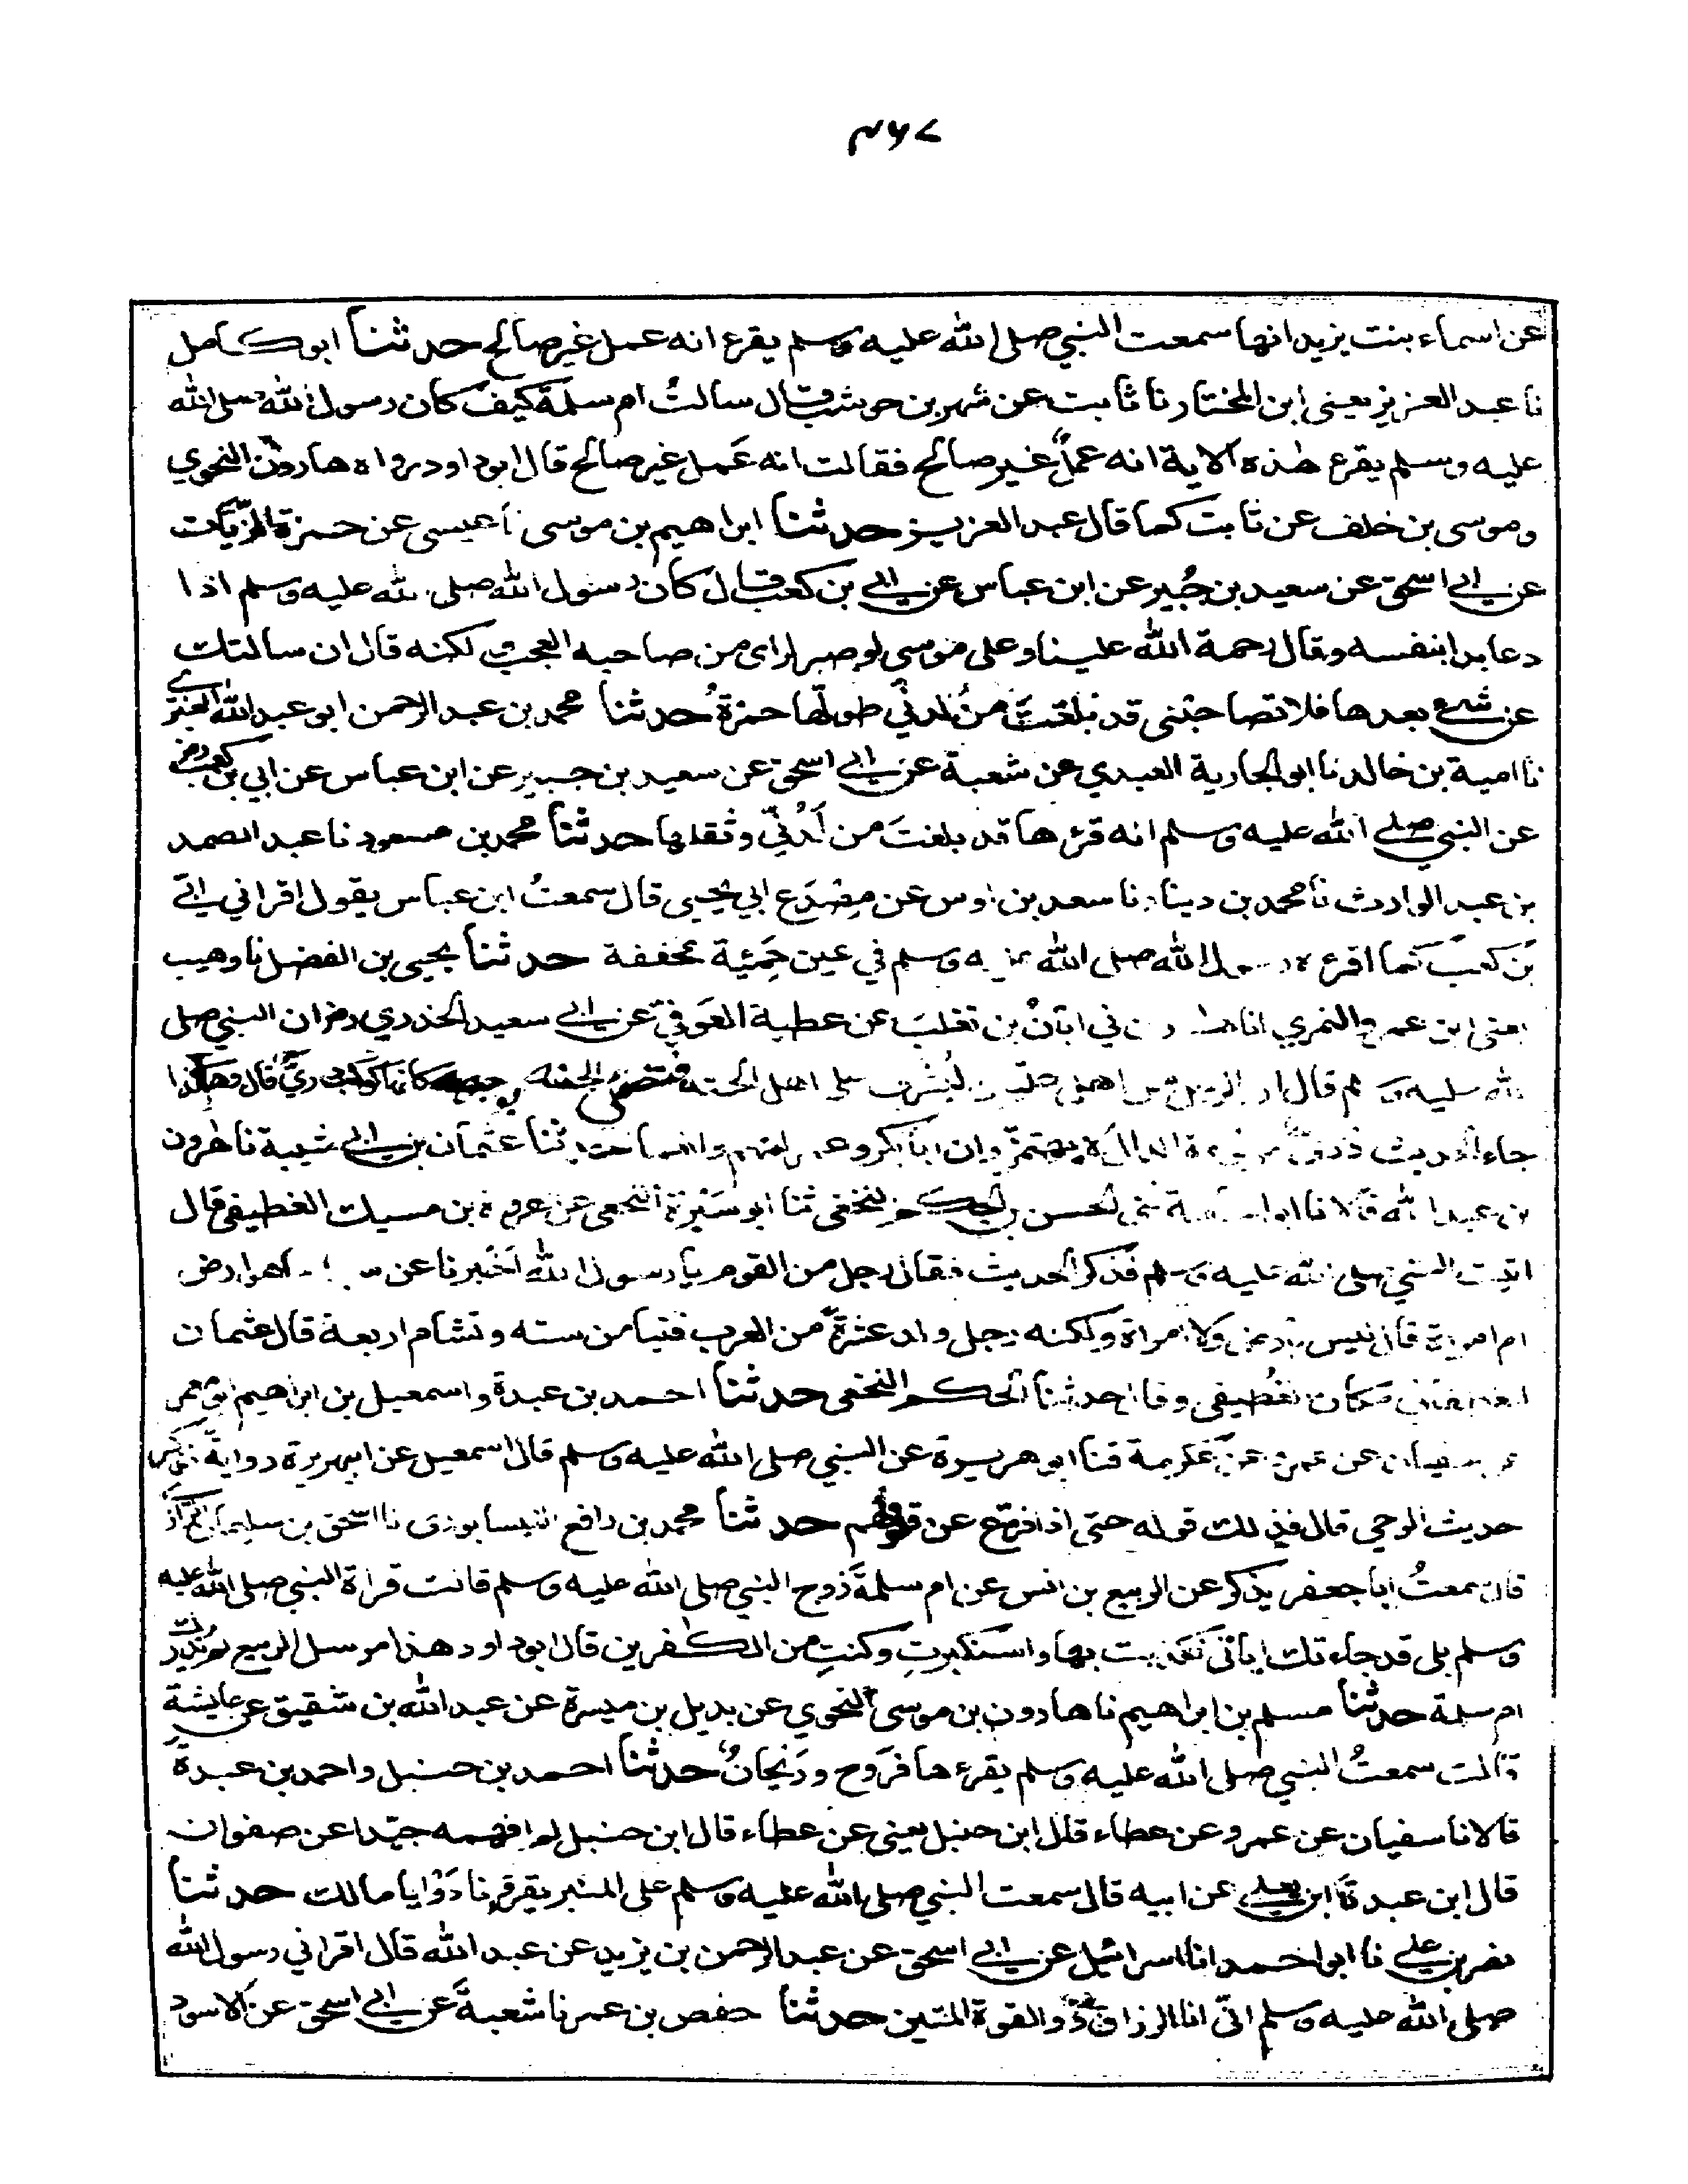 ۴۶۷
عن اسماء بنت يزيد انها سمعت النبي صلى الله عليه وسلم يقرء انه عمل غير صالح حدثنا ابو كامل
نا عبد العزيز يعنى ابن المختار نا ثابت عن شهر بن حوشب قال سالتُ ام سلمة كيف كان رسول الله صلى الله
عليه وسلم يقرء هذه الاية انه عملٌ غير صالح فقالت انه عَمِل غير صالح قال ابو داود رواه هارون النحوي
و موسى بن خلف عن ثابت كما قال عبد العزيز حدثنا ابراهيم بن موسى نا عيسى عن حمزة الزيات
عن ابي اسحق عن سعيد بن جُبير عن ابن عباس عن ابي بن كعب قال كان رسول الله صلى الله عليه وسلم اذا
دعا بدا بنفسه وقال رحمة الله علينا وعلى موسى لو صبر لراى من صاحبه العجب و لكنه قال ان سالتك
عن شئ بعدها فلا تصاحبنى قد بلغتَ من لدنّي طولها حمزة حدثنا محمد بن عبد الرحمن ابو عبد الله العنبري
نا امية بن خالد نا ابو الجارية العبدي عن شعبة عن ابي اسحق عن سعيد بن جبير عن ابن عباس عن ابي بن كعب رض
عن النبي صلى الله عليه وسلم انه قرءها قد بلغتَ من لَدُنّي وثقلها حدثنا محمد بن مسعود نا عبد الصمد
بن عبد الوارث نا محمد بن دينار نا سعد بن اوس عن مِصْدَع ابي يحيى قال سمعتُ ابن عباس يقول اقراني ابي
بن كعب كما اقرءه رسول الله صلى الله عليه وسلم في عين حَمِئة مخففة حدثنا يحيى بن الفضل نا وهيب
يعنى ابن عمرو النمري انا هارون ني ابان بن تغلب عن عطية العَوفي عن ابي سعيد الخدري رض ان النبي صلى
الله عليه وسلم قال ان الرجل من اهل عليين ليُشرف على اهل الجنة فتضئ الجنة لوجهه كانها كوكب دري قال وهكذا
جاء الحديث دري مرفوعة الدال لا يهمز وان ابا بكر وعمر لمنهم وانعما حدثنا عثمان بن ابي شيبة نا هرون
بن عبد الله قالا نا ابو اسامة ني الحسن بن الحكم النخعي ثنا ابو سَبْرة النخعي عن عروة بن مسيك الغطيفي قال
اتيت النبي صلى الله عليه وسلم فذكر الحديث فقال رجل من القوم يا رسول الله اَخْبِرنا عن سبا اهو ارض
ام امراة قال ليس بارض ولا امراة ولكنه رجل ولد عشرة من العرب فتيامن سته وتشام اربعة قال عثمان
الغطفاني مكان الغُطيفي وقال حدثنا الحكم النخعي حدثنا احمد بن عبدة و اسمعيل بن ابراهيم ابو معمر
عن سفيان عن عمرو عن عكرمة قثنا ابو هريرة عن النبي صلى الله عليه وسلم قال اسمعيل عن ابي هريرة رواية فذكر
حديث الوحي قال فذلك قوله حتى اذا فزع عن قلوبهم حدثنا محمد بن رافع النيسابورى نا اسحق بن سليمان الرازي
قال سمعتُ ابا جعفر يذكر عن الربيع بن انس عن ام سلمة زوج النبي صلى الله عليه وسلم قالت قراة النبي صلى الله عليه
وسلم بلى قد جاءتك اياتى فكذبت بها واستكبرتِ وكنتِ من الكفرين قال ابو داود هذا مرسل الربيع لم يُدرك
ام سلمة حدثنا مسلم بن ابراهيم نا هارون بن موسى النحوي عن بديل بن ميسرة عن عبد الله بن شقيق عن عايشة
قالت سمعتُ النبي صلى الله عليه وسلم يقرءها فرَوح ورَيحانٌ حدثنا احمد بن حنبل واحمد بن عبدة
قالا نا سفيان عن عمرو عن عطاء قال ابن حنبل يعنى عن عطاء قال ابن حنبل لم افهمه جيّدا عن صفوان
قال ابن عبدة ابن يعلى عن ابيه قال سمعت النبي صلى الله عليه وسلم على المنبر يقرء و نادَوْا يا مالك حدثنا
نصر بن علي نا ابو احمد انا اسرائيل عن ابي اسحق عن عبد الرحمن بن يزيد عن عبد الله قال اقراني رسول الله
صلى الله عليه وسلم انّى انا الرزاق ذو القوة المتين حدثنا حفص بن عمر نا شعبة عن ابي اسحق عن الاسود